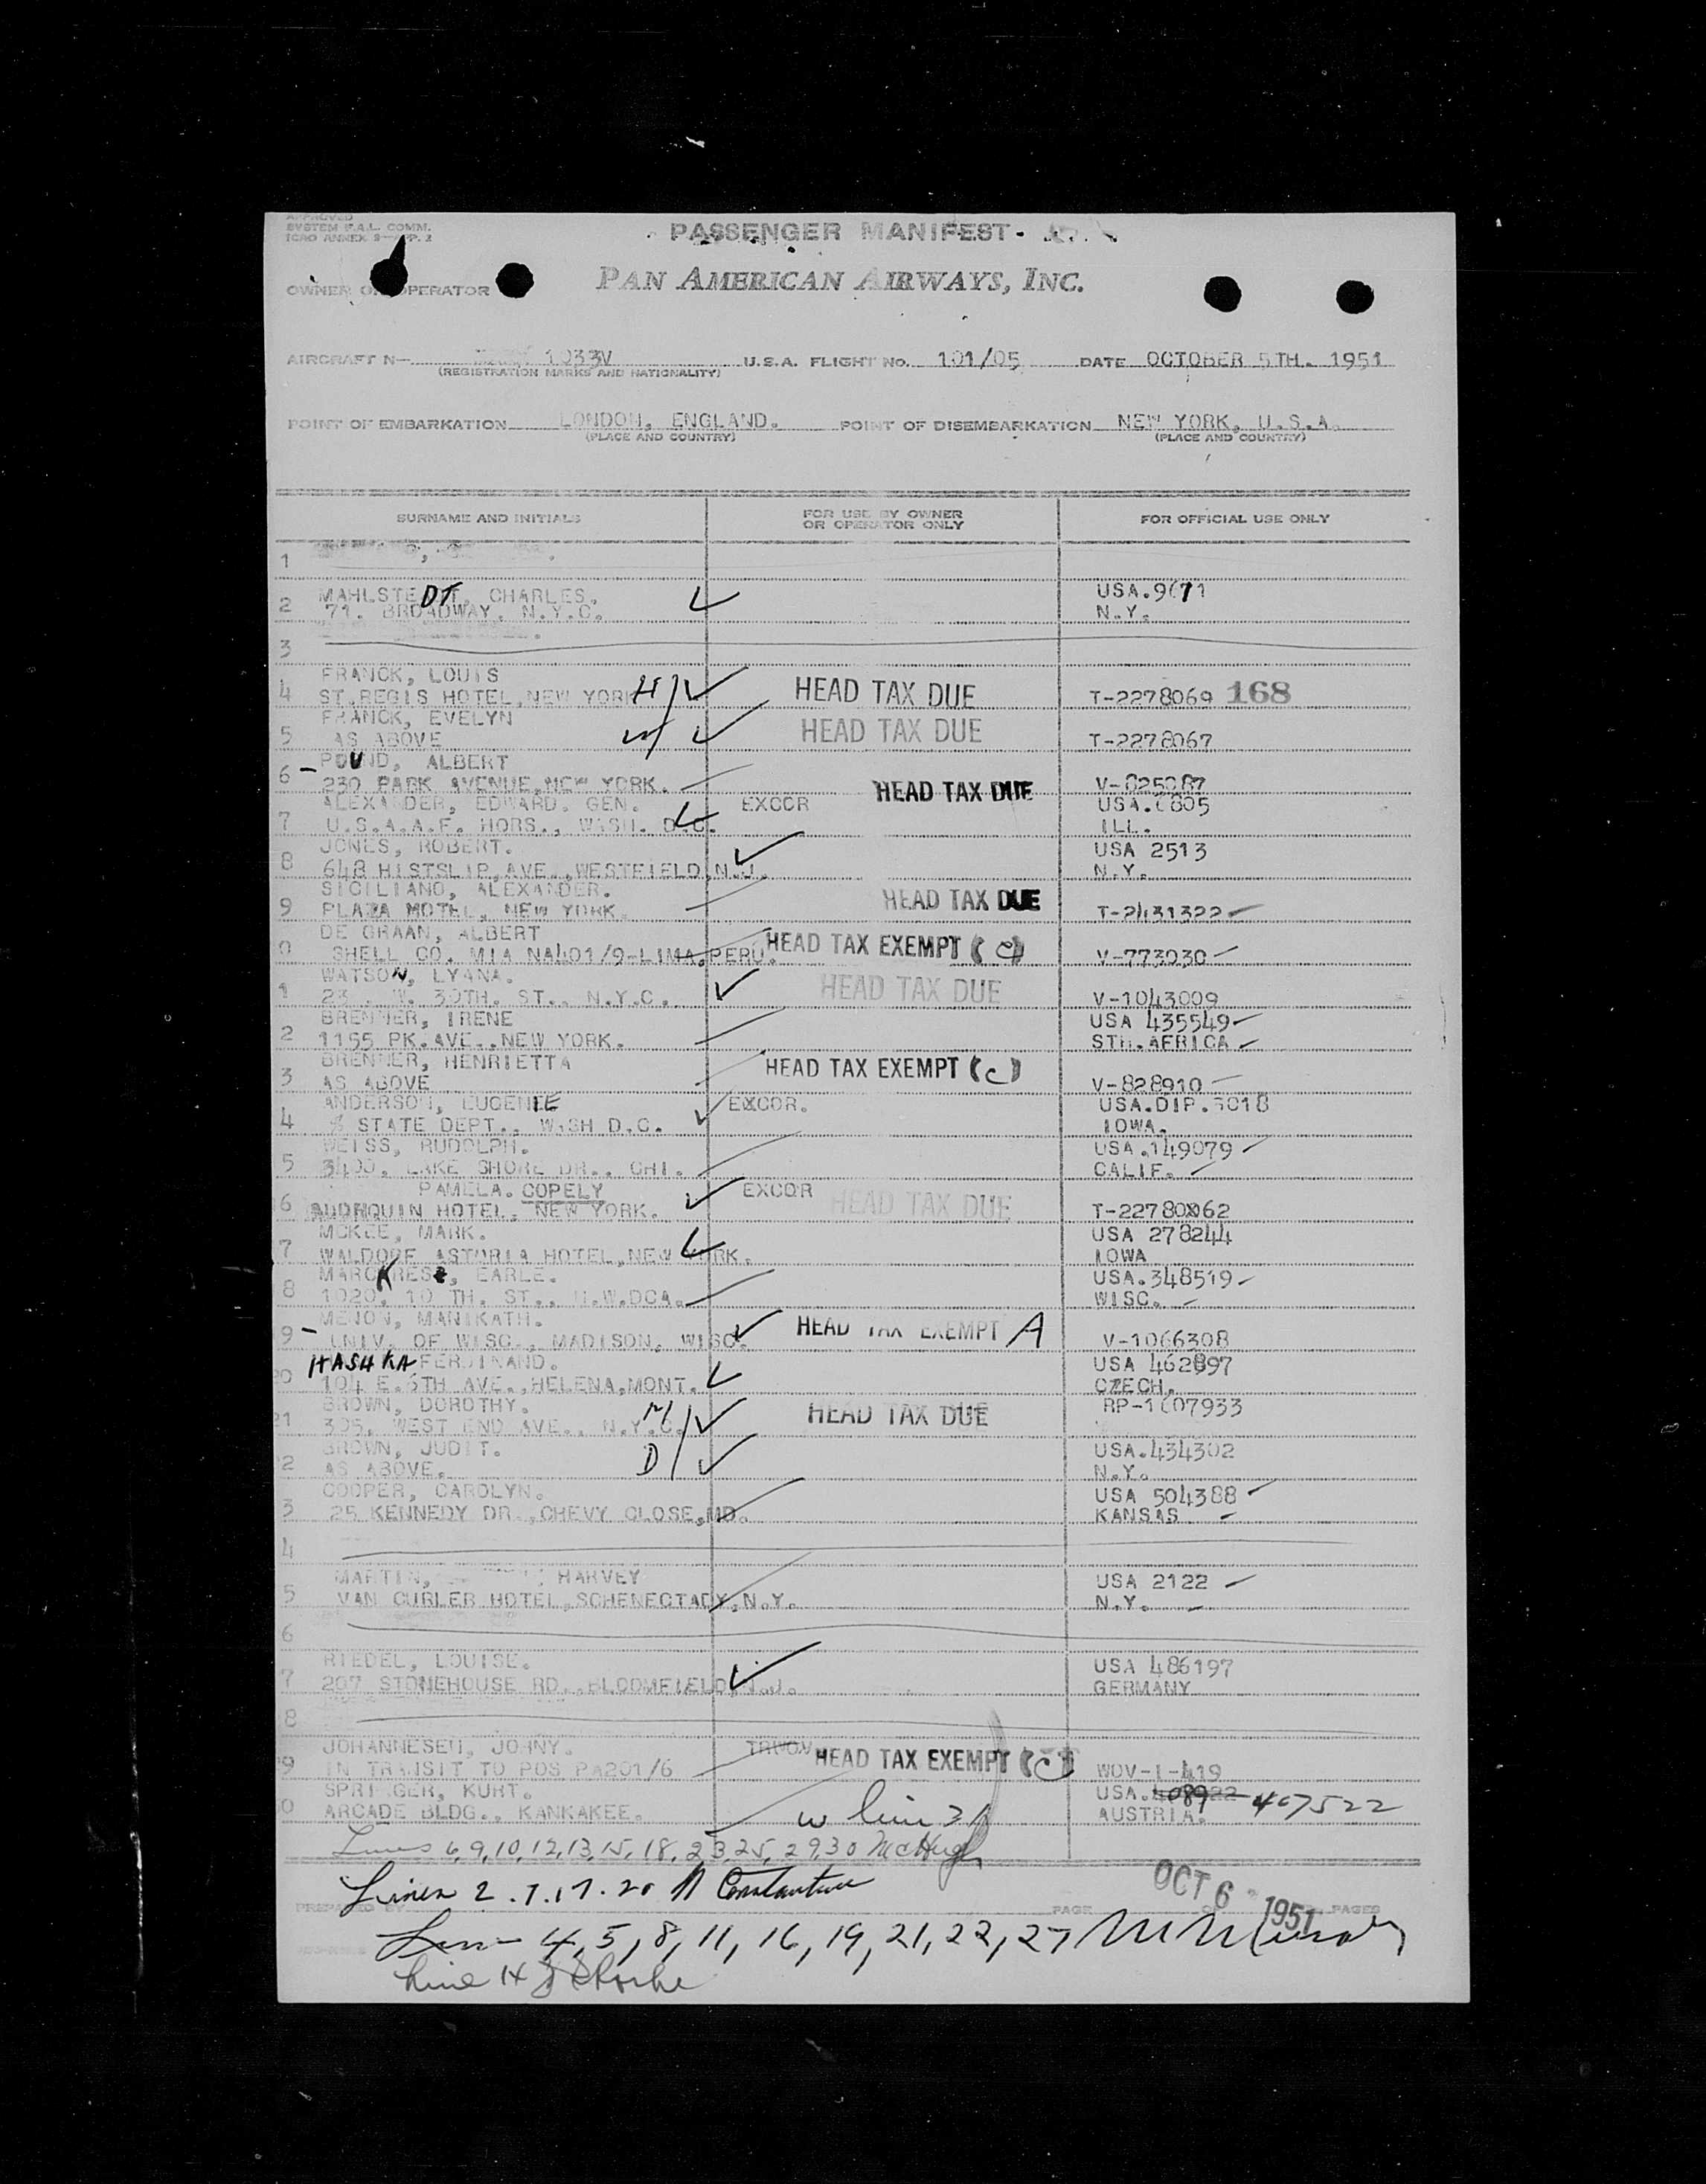 APPROVED
SYSTEM F.A.L. COMM.
ICAO ANNEX 9—APP. 2
PASSENGER MANIFEST
OWNER OR OPERATOR
PAN AMERICAN AIRWAYS, INC.
AIRCRAFT N— 1033V U.S.A. FLIGHT No. 101/05 DATE OCTOBER 5TH. 1951
(REGISTRATION MARKS AND NATIONALITY)
POINT OF EMBARKATION LONDON, ENGLAND. POINT OF DISEMBARKATION NEW YORK, U.S.A.
(PLACE AND COUNTRY) (PLACE AND COUNTRY)
SURNAME AND INITIALS FOR USE BY OWNER OR OPERATOR ONLY FOR OFFICIAL USE ONLY
1
MAHLSTEDT, CHARLES. USA.9671
2 71. BROADWAY, N.Y.C. N.Y.
3
FRANCK, LOUIS
4 ST.REGIS HOTEL,NEW YORK H/ HEAD TAX DUE T-2278069 168
FRANCK, EVELYN
5 AS ABOVE W/ HEAD TAX DUE T-2278067
POUND, ALBERT
6 - 230 PARK AVENUE,NEW YORK. HEAD TAX DUE V-825087
ALEXANDER, EDWARD. GEN. EXCOR USA.6805
7 U.S.A.A.F. HQRS., WASH. D.C. ILL.
JONES, ROBERT. USA 2513
8 648 HISTSLIP,AVE.,WESTFIELD,N.J. N.Y.
SICILIANO, ALEXANDER.
9 PLAZA MOTEL, NEW YORK. HEAD TAX DUE T-2431322
DE GRAAN, ALBERT
0 SHELL CO. MIA NA401/9-LIMA,PERU. HEAD TAX EXEMPT (C) V-773030
WATSON, LYANA.
1 23 . W. 30TH. ST., N.Y.C. HEAD TAX DUE V-1043009
BRENNER, IRENE USA 435549
2 1155 PK.AVE.,NEW YORK. STH.AFRICA
BRENNER, HENRIETTA
3 AS ABOVE HEAD TAX EXEMPT (C) V-828910
ANDERSON, EUGENIE EXCOR. USA.DIP.5018
4 % STATE DEPT., WASH D.C. IOWA.
WEISS, RUDOLPH. USA.149079
5 3400, LAKE SHORE DR., CHI. CALIF.
PAMELA. COPELY EXCOR
6 HOTEL, NEW YORK. HEAD TAX DUE T-2278062
MCKEE, MARK. USA 278244
7 WALDORF ASTORIA HOTEL,NEW YORK. IOWA
EARLE. USA.348519
8 1020, 10 TH. ST., N.W.DCA. WISC.
MENON, MANIKATH.
9 - UNIV. OF WISC., MADISON, WISC. HEAD TAX EXEMPT A V-1066308
HASHKA FERDINAND. USA 462897
20 104 E.6TH AVE.,HELENA,MONT. CZECH.
BROWN, DOROTHY. RP-1607933
21 305, WEST END AVE., N.Y.C. M/ HEAD TAX DUE
BROWN, JUDIT. USA.434302
2 AS ABOVE. D/ N.Y.
COOPER, CAROLYN. USA 504388
3 25 KENNEDY DR.,CHEVY CLOSE,MD. KANSAS
4
MARTIN, HARVEY USA 2122
5 VAN CURLER HOTEL,SCHENECTADY,N.Y. N.Y.
6
RIEDEL, LOUISE. USA 486197
7 207 STONEHOUSE RD.,BLOOMFIELD,N.J. GERMANY
8
JOHANNESEN, JOHNY. TRWOV
9 IN TRANSIT TO POS PA201/6 HEAD TAX EXEMPT (C) WOV-I-419
SPRINGER, KURT. USA. 467522
0 ARCADE BLDG., KANKAKEE. AUSTRIA.
Lines 6,9,10,12,13,15,18,23,25,29,30 McHugh
Lines 2.7.17.20 Constantine
PREPARED BY PAGE OF PAGES
OCT 6 1951
4,5,8,11,16,19,21,22,27
Line 14